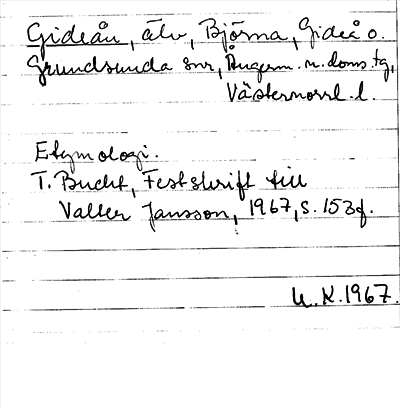 Gideån, älv, Björna, Gideå o.
Grundsunda snr, Ångerm. n. doms.tg,
Västernorrl. l.
Etymologi.
T. Bucht, Festskrift till
Valter Jansson, 1967, s. 153f.
U. K. 1967.